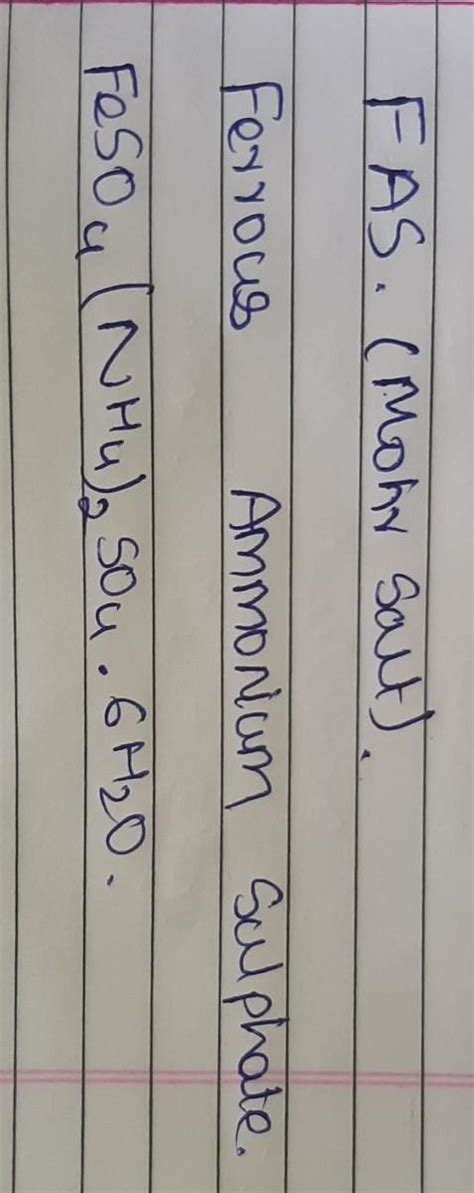 FAS. (Mohr Salt).
Ferrous Ammonium Sulphate.
FeSO4 (NH4)2 SO4 . 6H2O.